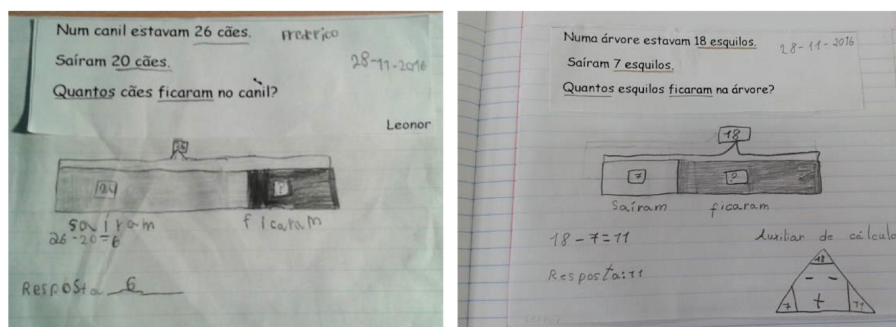 Num canil estavam 26 cães.
Frederico
Saíram 20 cães.
28-11-2016
Quantos cães ficaram no canil?
Leonor
26
?
Saíram
ficaram
26-20=6
Resposta 6
Numa árvore estavam 18 esquilos.
28-11-2016
Saíram 7 esquilos.
Quantos esquilos ficaram na árvore?
18
7
?
Saíram
ficaram
18-7=11
Auxiliar de cálculo
Resposta:11
18
- -
7
+
11